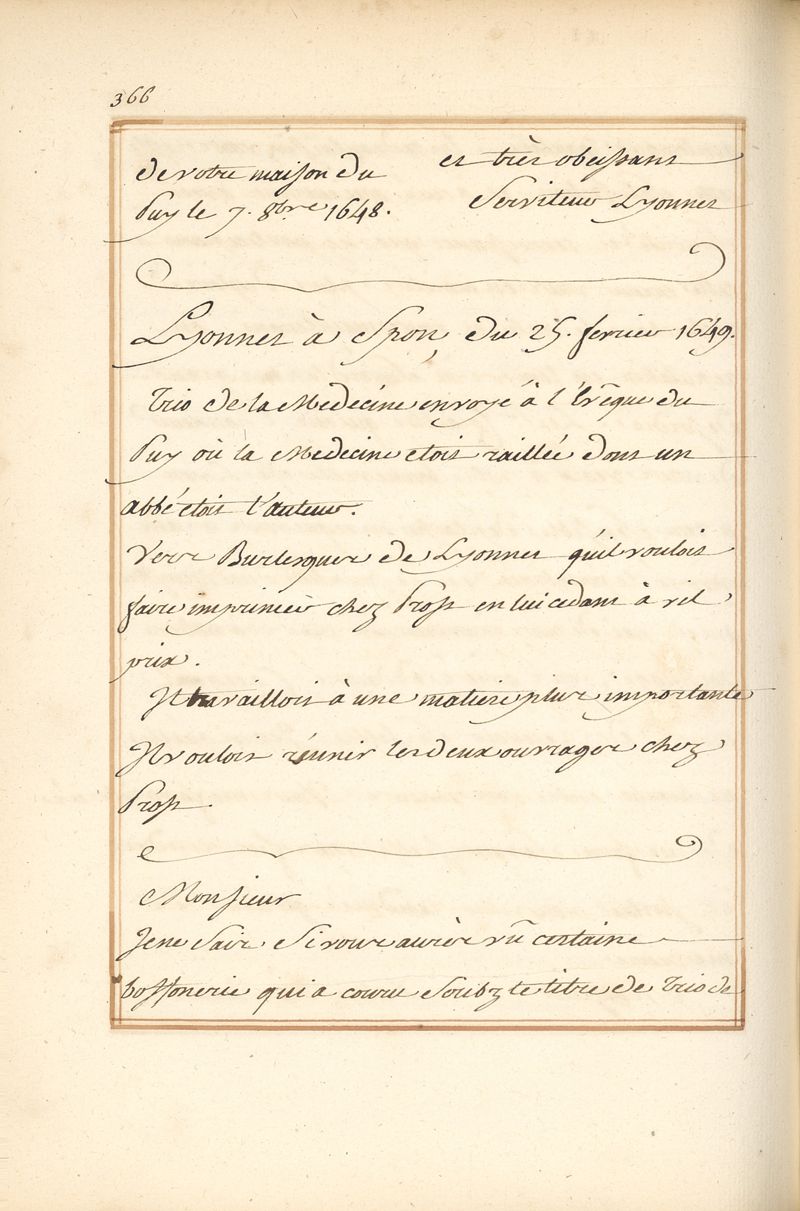 366
de votre maison du
Puy le 7. 8bre 1648.
et très obeissant
Serviteur Lyonnet
Lyonnet à Spon du 25. fevrier 1649.
Trio de la Medecine envoyé à l'Evêque du
Puy où la Medecine etoit raillée dont un
abbé etoit l'auteur.
Vers Burlesques de Lyonnet qu'il vouloit
faire imprimer chez Prost en lui cedant à vil
prix.
Il travailloit à une matiere plus importante
Il vouloit réunir les deux ouvrages chez
Prost.
Monsieur
Je ne Sais Si vous auriés vû certaine
boffonerie qui a couru Soubz le titre de Trio de